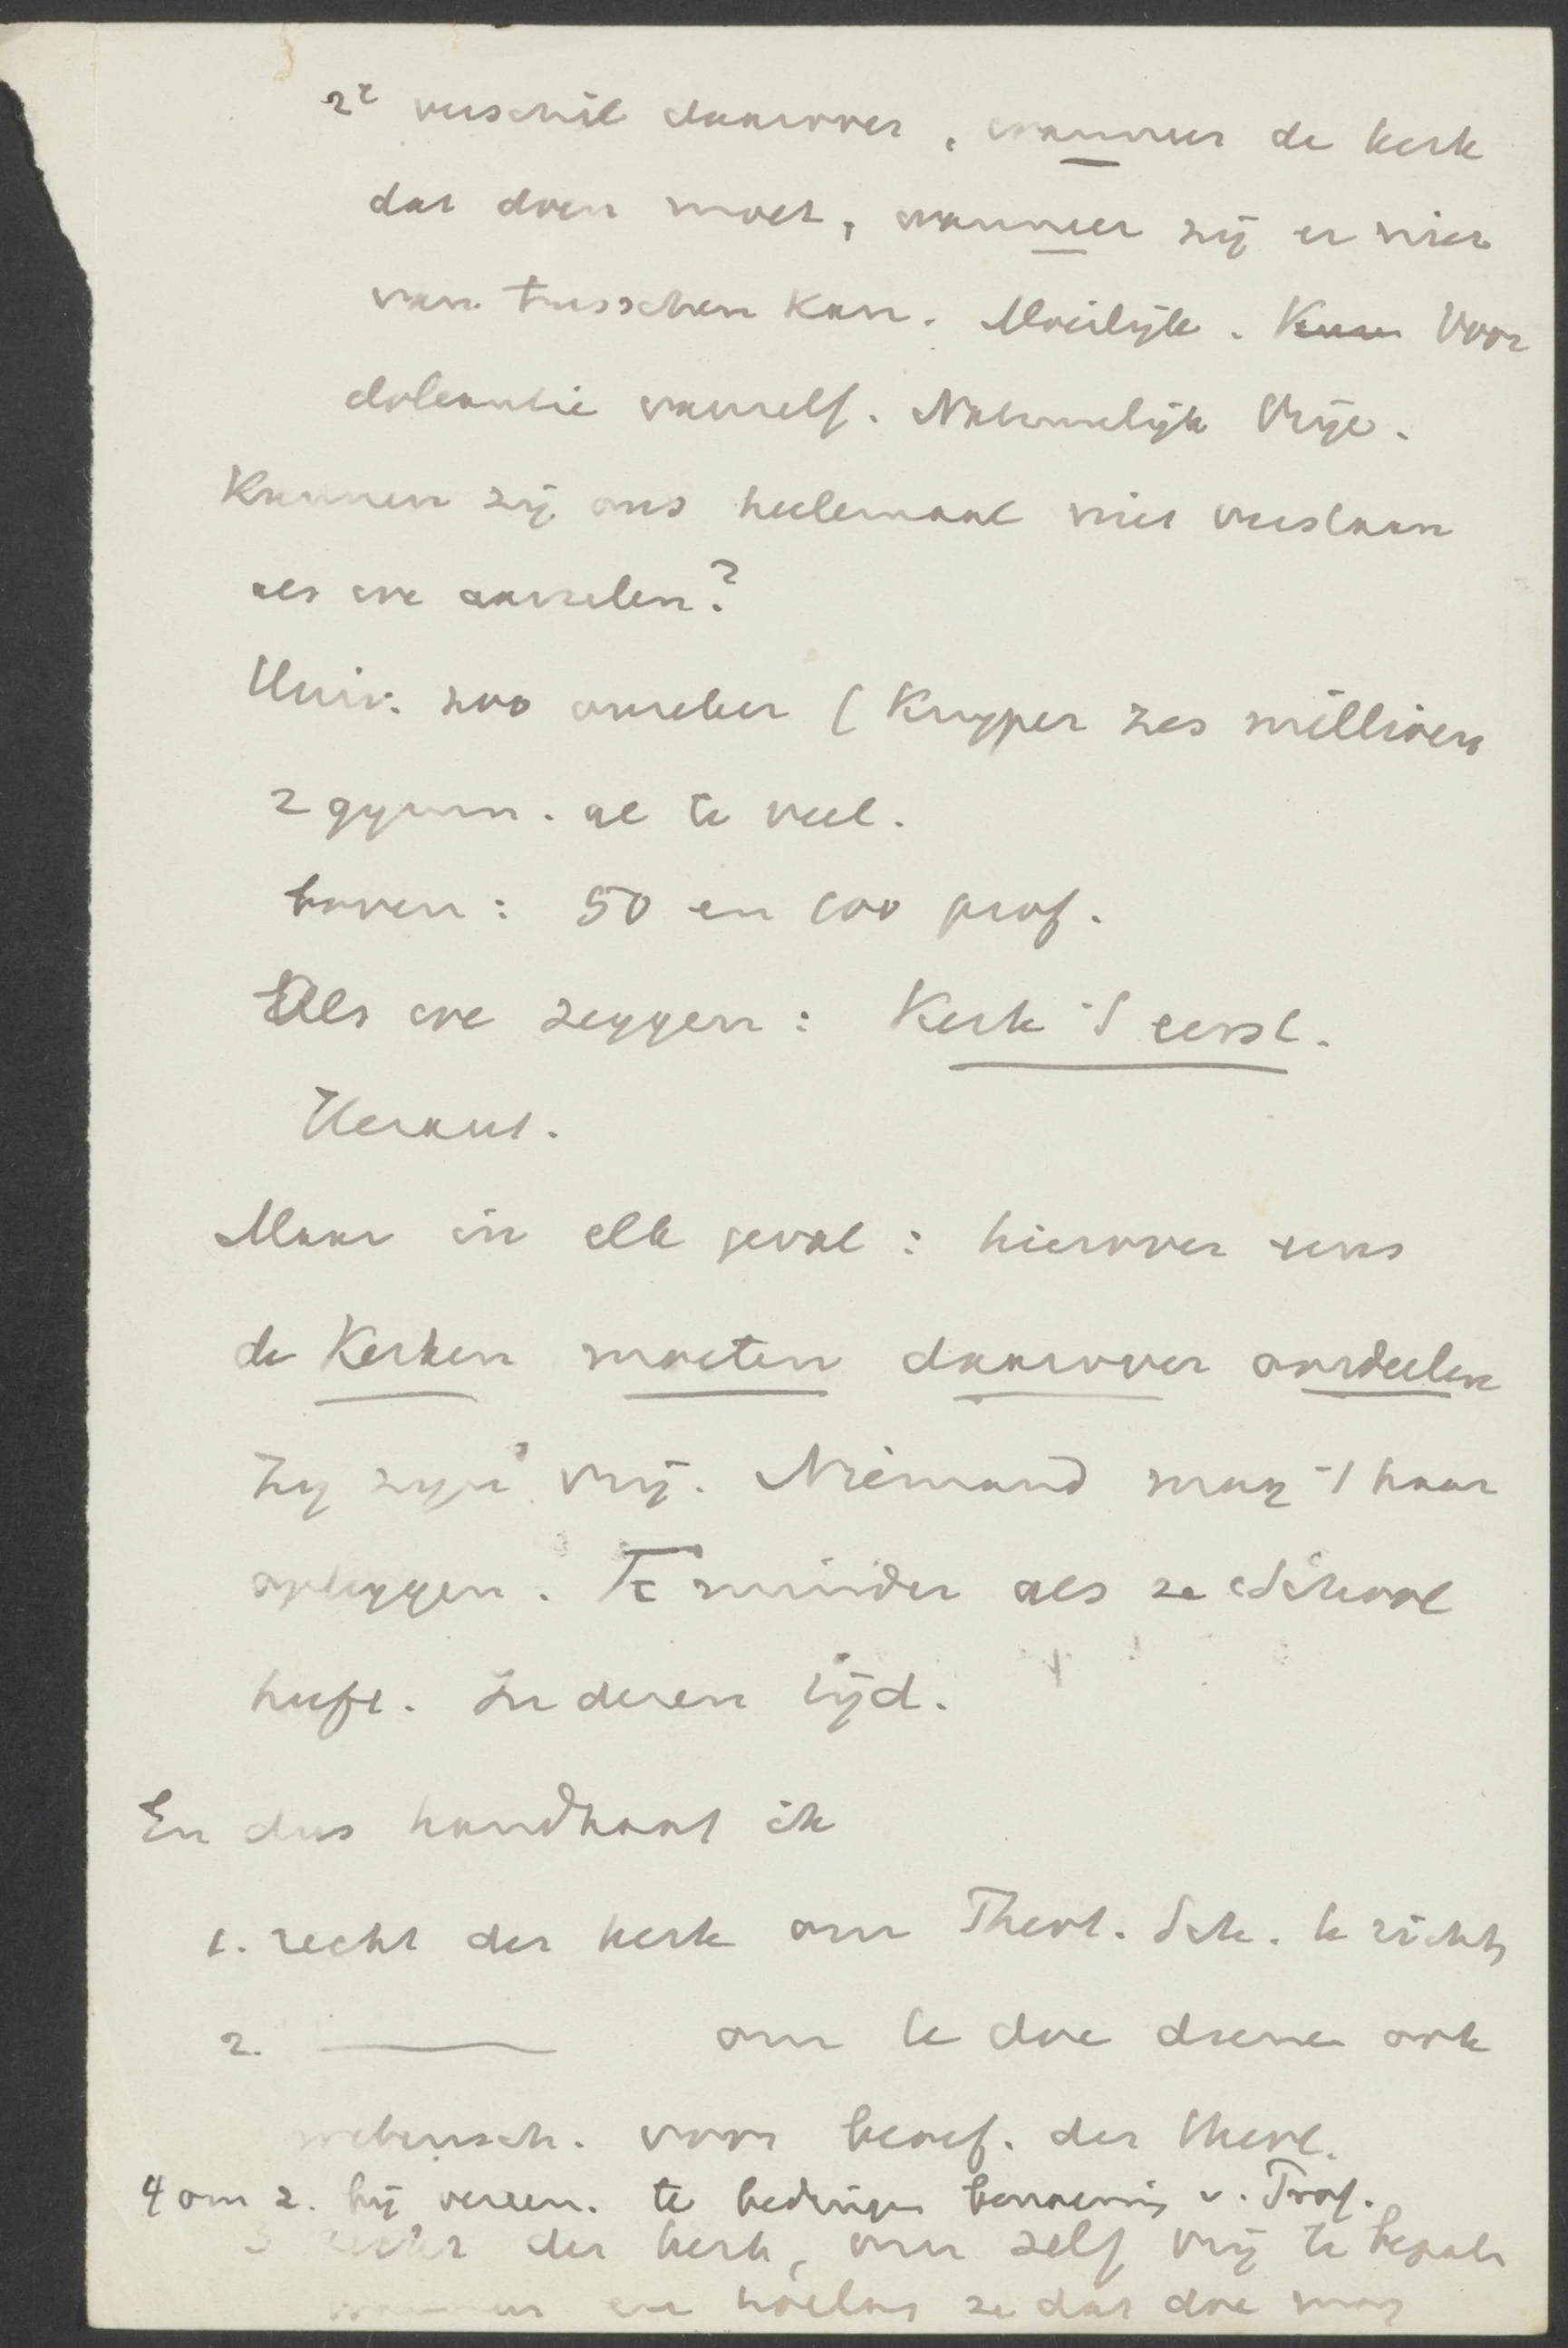 2e verschil daarover, wanneer de kerk
dat doen moet, wanneer zij er niet
van tusschen kan. Moeilijk. Kun Voor
doleantie vanzelf. Natuurlijk Vrije.
Kunnen zij ons heelemaal niet verstaan
als we aarzelen?
Univ. zoo onzeker (Kuyper zes millioen
2 gymn. al te veel.
boven: 50 en 100 prof.
Als we zeggen: Kerk 't eerst.
Heraut.
Maar in elk geval: hierover eens
de Kerken moeten daarover oordeelen
Zij zijn vrij. Niemand mag 't haar
opleggen. Te minder als ze School
heeft. In dezen tijd.
En dus handhaaf ik
1. recht der kerk om Theol. Sch. te richten
2. ——— om te doe dienen ook
wetensch. voor beoef. der theol.
4 om 2. bij vereen. te bedingen benoeming v. Prof.
3 recht der kerk, om zelf vrij te bepale
wanneer en hoelang ze dat doe mag